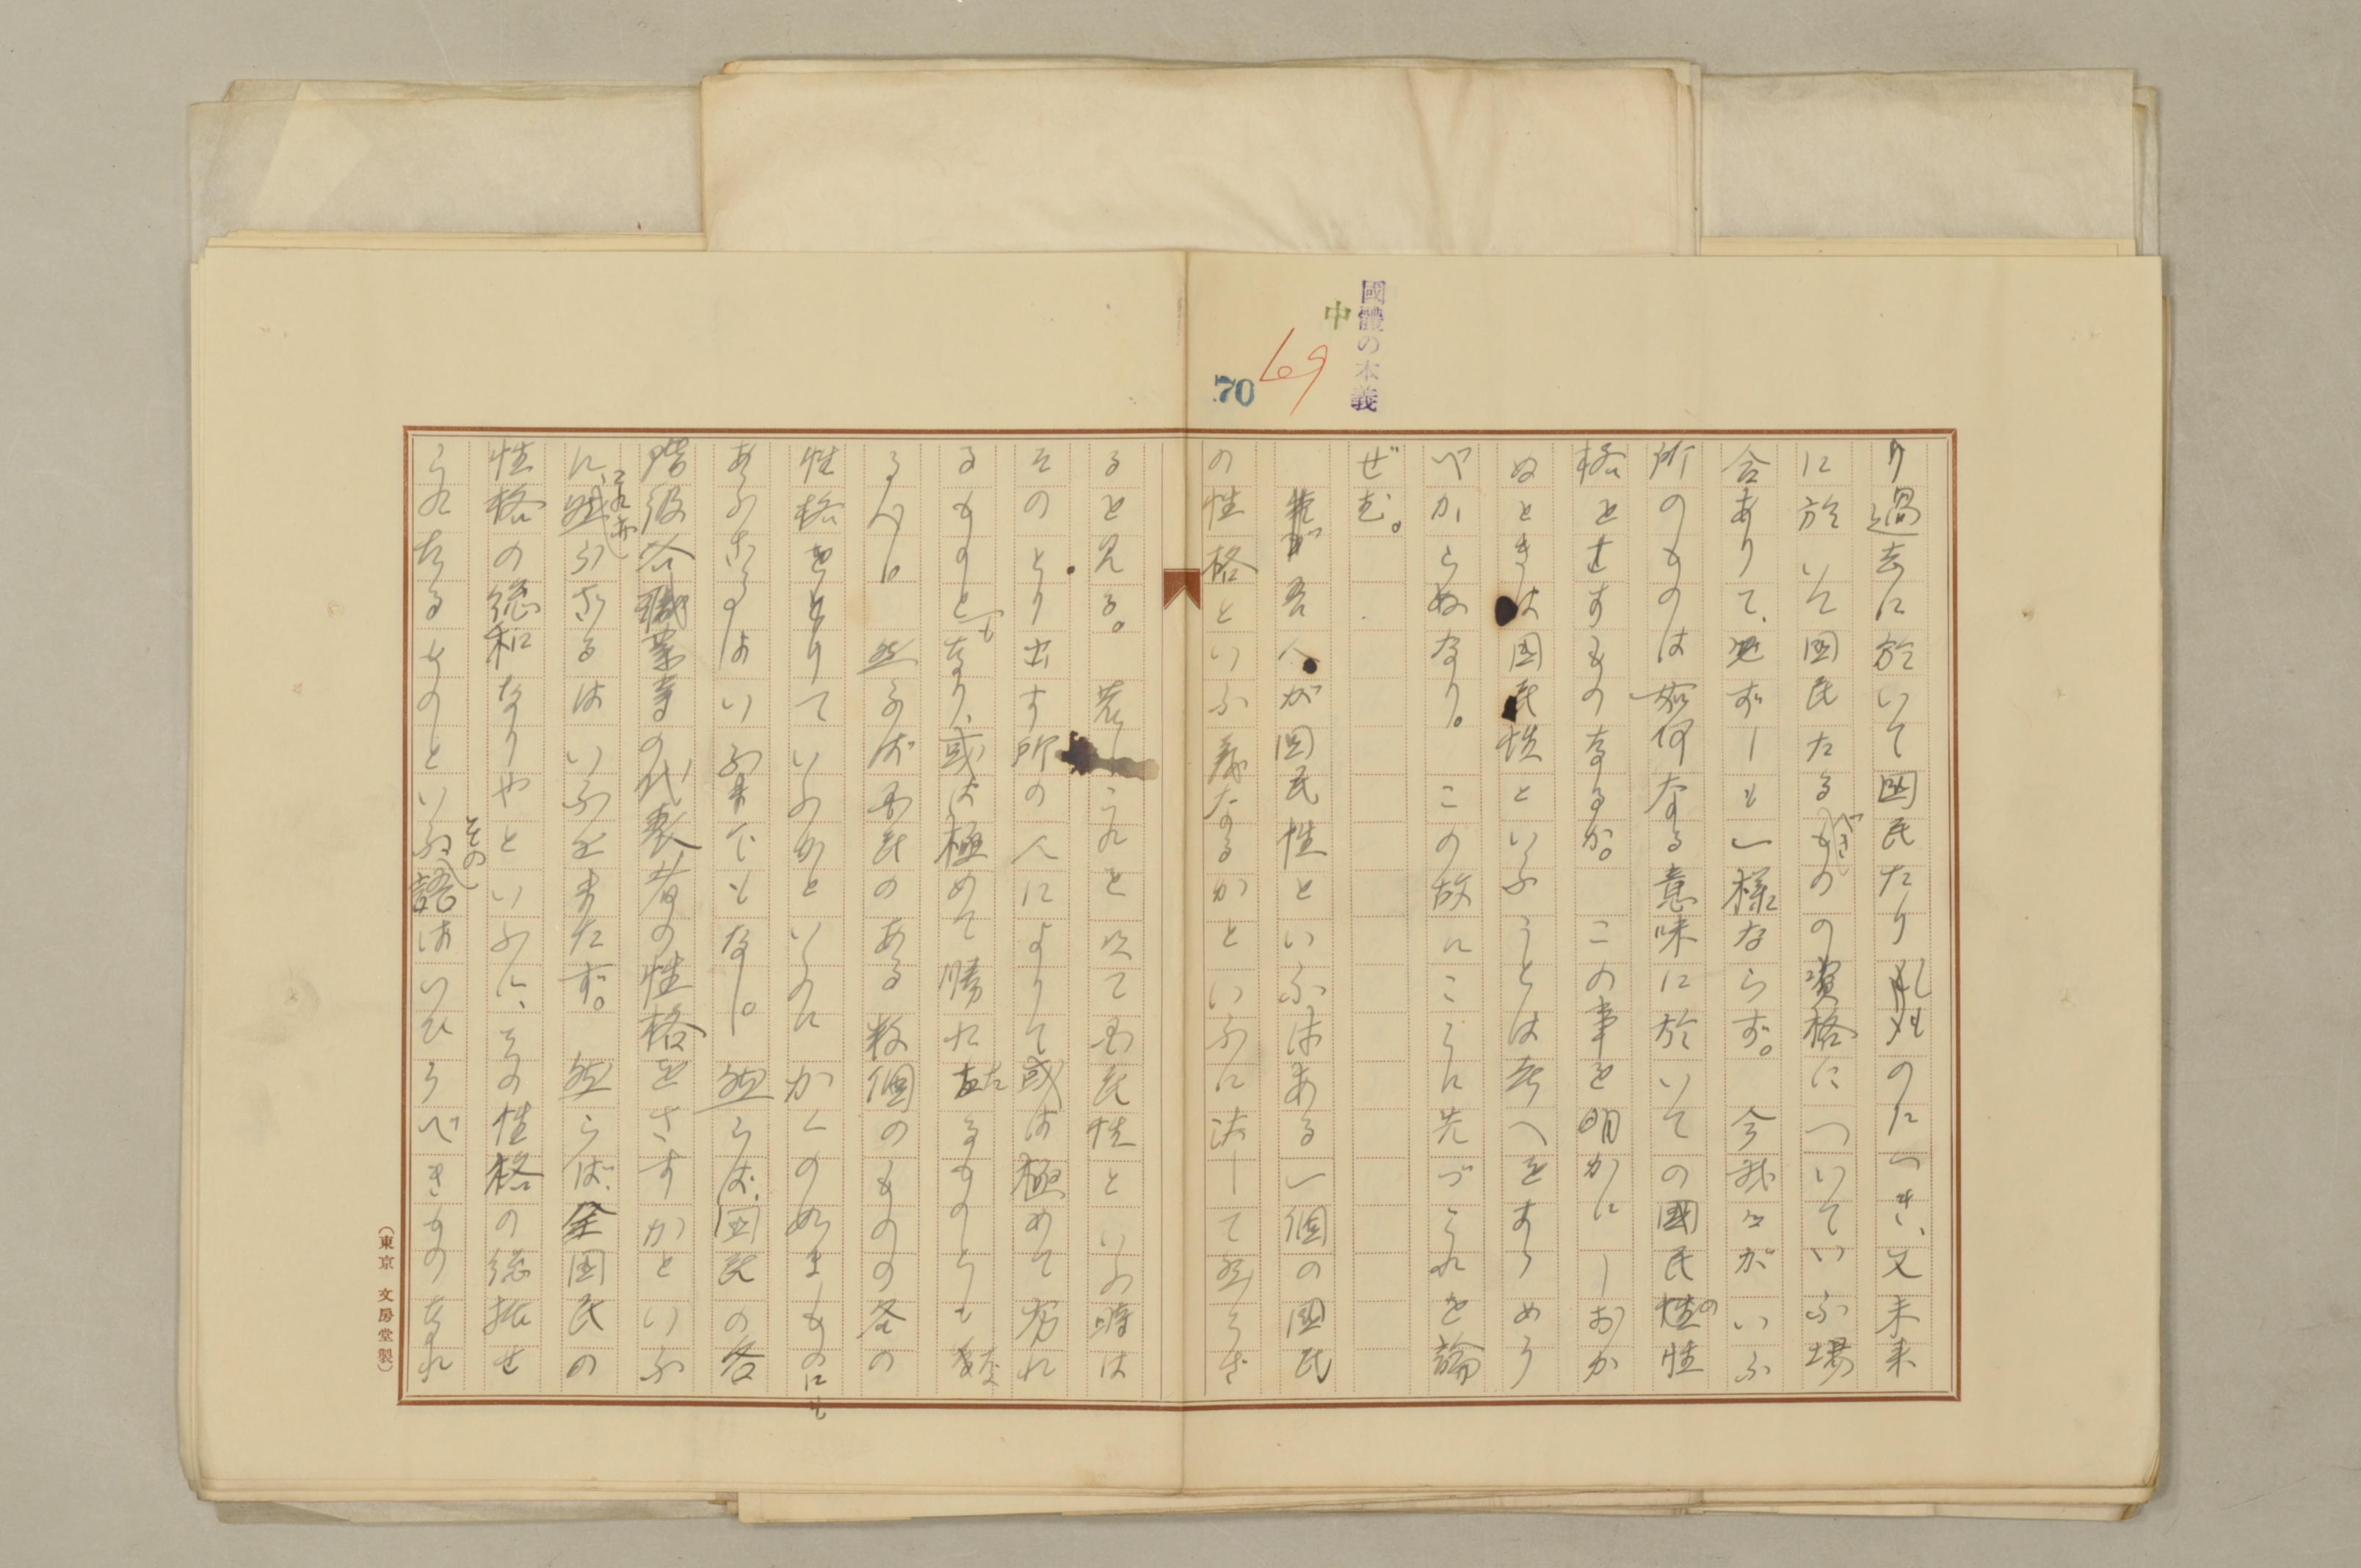 國體の本義
中
69
70
り過去に於いて国民たりしものにつき、又未来
に於いて国民たるべきものの資格についていふ場
合ありて、必ずしも一様ならず。今我々がいふ
所のものは如何なる意味に於いての國民の性
格とせすものなるか。この事を明かにしおか
ぬときは国民性といふことは考へをすゝめう
べからぬなり。この故にここに先づこれを論
ぜむ。
吾人が国民性といふはある一個の国民
の性格といふ義なるかといふに決して然らざ
ると見る。若しこれを以て国民性といふ時は
そのとり出す所の人によりて或は極めて劣れ
るものともなり、或は極めて勝れたるものとも変
るべし。然らば国民のある数個のものの各の
性格をとりていふかといふにかくの如きものにも
あらざるはいふまでもなし。然らば、国民の各
階級各職業等の代表者の性格をさすかといふ
に、これ亦しからざるはいふをまたず。然らば、全国民の
性格の総和なりやといふに、その性格の総括せ
られたるものといふその語はいひうべきものなれ
(東京 文房堂製)